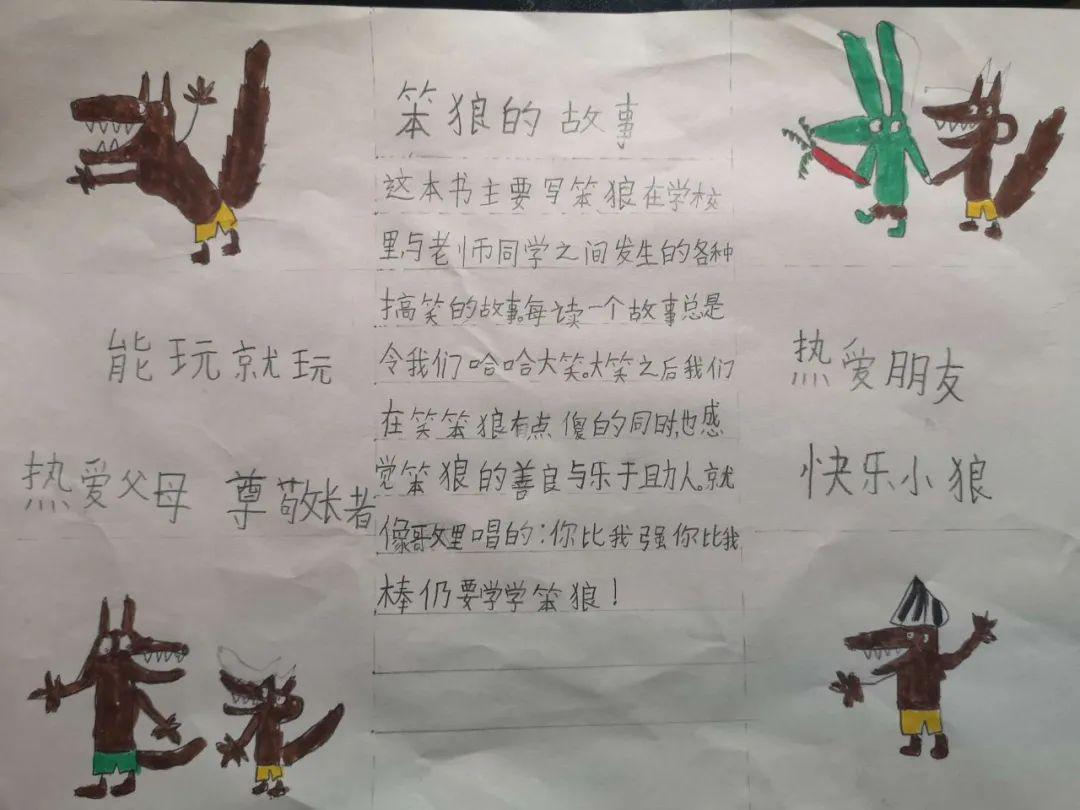 笨狼的故事
这本书主要写笨狼在学校
里,与老师同学之间发生的各种
搞笑的故事。每读一个故事总是
令我们哈哈大笑。大笑之后我们
在笑笨狼有点傻的同时,也感
觉笨狼的善良与乐于助人。就
像歌里唱的:你比我强你比我
棒仍要学学笨狼!
能玩就玩
热爱父母 尊敬长者
热爱朋友
快乐小狼